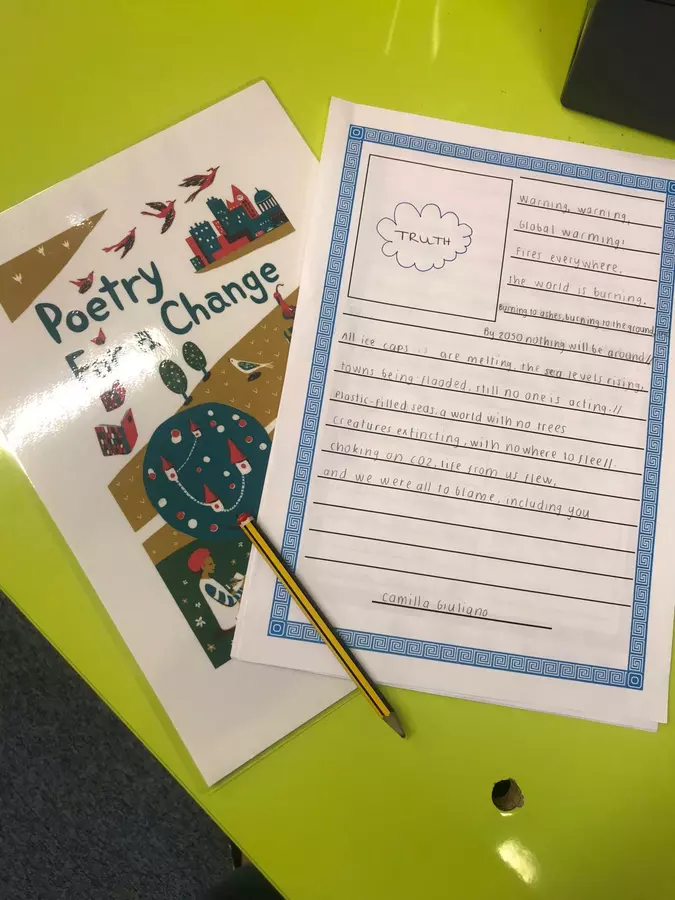 Poetry
For a
Change
TRUTH
Warning, warning,
Global warming!
Fires everywhere,
The world is burning.
Burning to ashes, burning to the ground
By 2050 nothing will be around//
All ice caps are melting, the sea levels rising,
towns being flooded, still no one is acting.//
Plastic-filled seas, a world with no trees
Creatures extincting, with nowhere to flee//.
choking on CO2, life from us flew,
and we were all to blame, including you
Camilla Giuliano